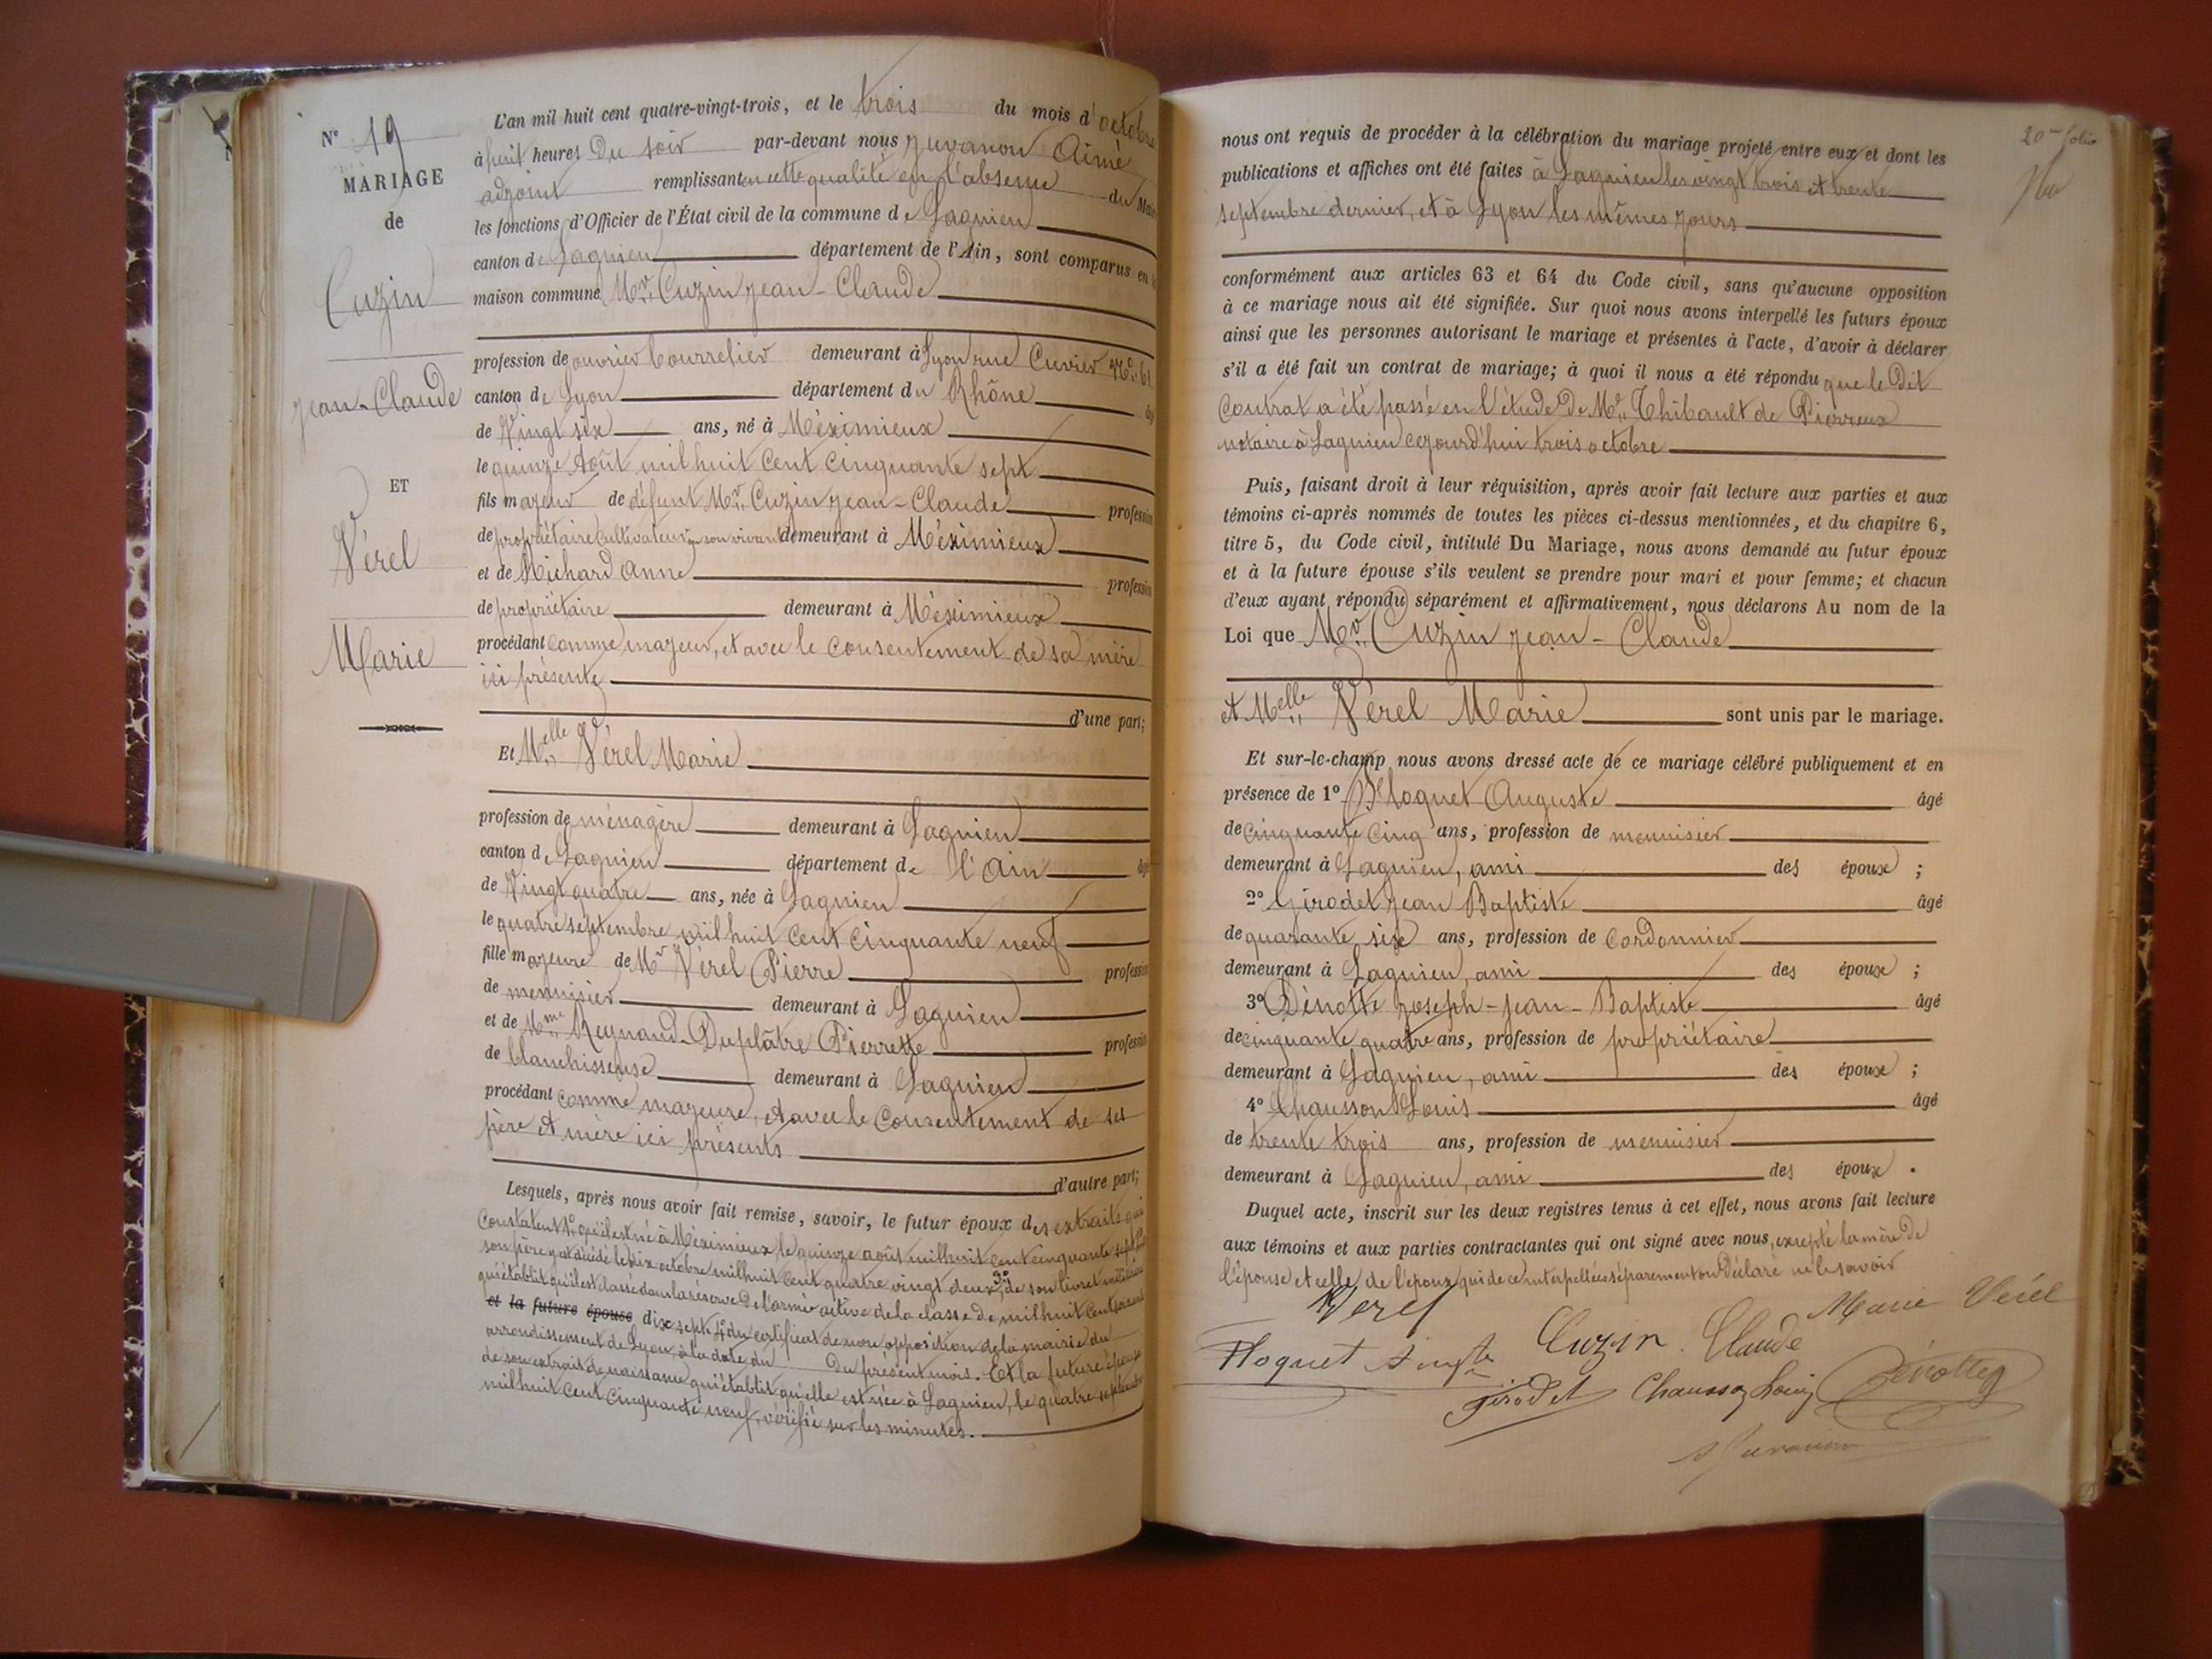 N° 19
MARIAGE
de
Cuzin
Jean-Claude
ET
Vérel
Marie
L'an mil huit cent quatre-vingt-trois, et le trois du mois d'octobre
à huit heures du soir par-devant nous Juvanon Aimé
adjoint remplissant en cette qualité en l'absence du Maire
les fonctions d'Officier de l'État civil de la commune de Lagnieu
canton de Lagnieu département de l'Ain, sont comparus en la
maison commune Mr. Cuzin Jean-Claude
profession de ouvrier bourrelier demeurant à Lyon rue Cuvier No. 61
canton de Lyon département du Rhône
de Vingt six ans, né à Méximieux
le quinze Août mil huit cent cinquante sept
fils majeur de défunt Mr. Cuzin Jean-Claude profession
de propriétaire Cultivateur en son vivant demeurant à Méximieux
et de Richard Anne profession
de propriétaire demeurant à Méximieux
procédant comme majeur, et avec le consentement de sa mère
ici présente
d'une part;
Et Melle Vérel Marie
profession de ménagère demeurant à Lagnieu
canton de Lagnieu département de l'Ain âgée
de Vingt quatre ans, née à Lagnieu
le quatre septembre mil huit cent cinquante neuf
fille majeure de Mr Vérel Pierre profession
de menuisier demeurant à Lagnieu
et de Mme Reynaud-Duplâtre Pierrette profession
de blanchisseuse demeurant à Lagnieu
procédant comme majeure, et avec le Consentement de ses
père et mère ici présents
d'autre part;
Lesquels, après nous avoir fait remise, savoir, le futur époux des extraits qui
constatent 1° qu'il est né à Méximieux le quinze août mil huit cent cinquante sept
son père y est décédé le dix octobre mil huit cent quatre vingt deux, 3° de son livret militaire
qui établit qu'il est classé dans la réserve de l'armée active de la classe de mil huit cent soixante
et la future épouse dix sept 4° du certificat de non opposition de la mairie du
arrondissement de Lyon, à la date du du présent mois. Et la future épouse
de son extrait de naissance qui établit qu'elle est née à Lagnieu, le quatre septembre
mil huit cent cinquante neuf, vérifié sur les minutes.
20me folio
nous ont requis de procéder à la célébration du mariage projeté entre eux et dont les
publications et affiches ont été faites à Lagnieu les vingt trois et trente
septembre dernier, et à Lyon les mêmes jours
conformément aux articles 63 et 64 du Code civil, sans qu'aucune opposition
à ce mariage nous ait été signifiée. Sur quoi nous avons interpellé les futurs époux
ainsi que les personnes autorisant le mariage et présentes à l'acte, d'avoir à déclarer
s'il a été fait un contrat de mariage; à quoi il nous a été répondu que le dit
Contrat a été passé en l'étude de Me. Thibault de Pierreux
notaire à Lagnieu cejourd'hui trois octobre
Puis, faisant droit à leur réquisition, après avoir fait lecture aux parties et aux
témoins ci-après nommés de toutes les pièces ci-dessus mentionnées, et du chapitre 6,
titre 5, du Code civil, intitulé Du Mariage, nous avons demandé au futur époux
et à la future épouse s'ils veulent se prendre pour mari et pour femme; et chacun
d'eux ayant répondu séparément et affirmativement, nous déclarons Au nom de la
Loi que Mr. Cuzin Jean-Claude
et Melle Vérel Marie sont unis par le mariage.
Et sur-le-champ nous avons dressé acte de ce mariage célébré publiquement et en
présence de 1° Floquet Auguste âgé
de cinquante cinq ans, profession de menuisier
demeurant à Lagnieu, ami des époux ;
2° Girodet Jean Baptiste âgé
de quarante six ans, profession de Cordonnier
demeurant à Lagnieu, ami des époux ;
3° Dénotte Joseph-Jean-Baptiste âgé
de cinquante quatre ans, profession de propriétaire
demeurant à Lagnieu, ami des époux ;
4° Chausson Louis âgé
de trente trois ans, profession de menuisier
demeurant à Lagnieu, ami des époux .
Duquel acte, inscrit sur les deux registres tenus à cet effet, nous avons fait lecture
aux témoins et aux parties contractantes qui ont signé avec nous, excepté la mère de
l'épouse et celle de l'époux qui de ce interpellées séparement ont déclaré ne le savoir
Verel
Marie Vérel
Floquet Cuzin Claude
Girodet Chausson Louis Dénotte
Juvanon